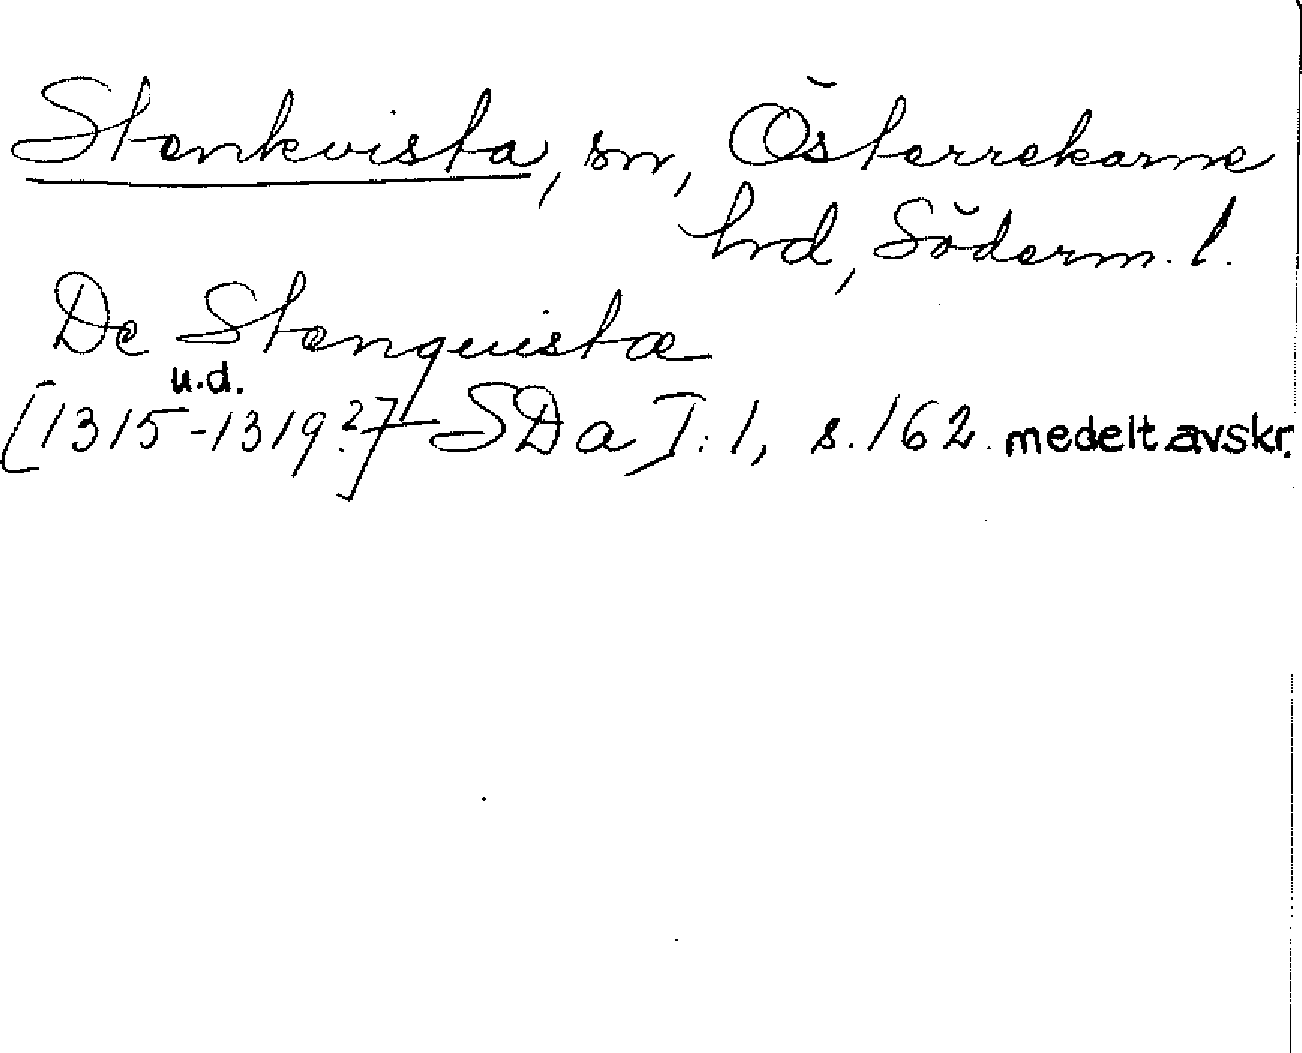 Stenkvista, sn, Österrekarne
hd, Söderm. l.
De Stenquista
u.d.
[1315-1319?] SDa I:1, s.162. medelt avskr.